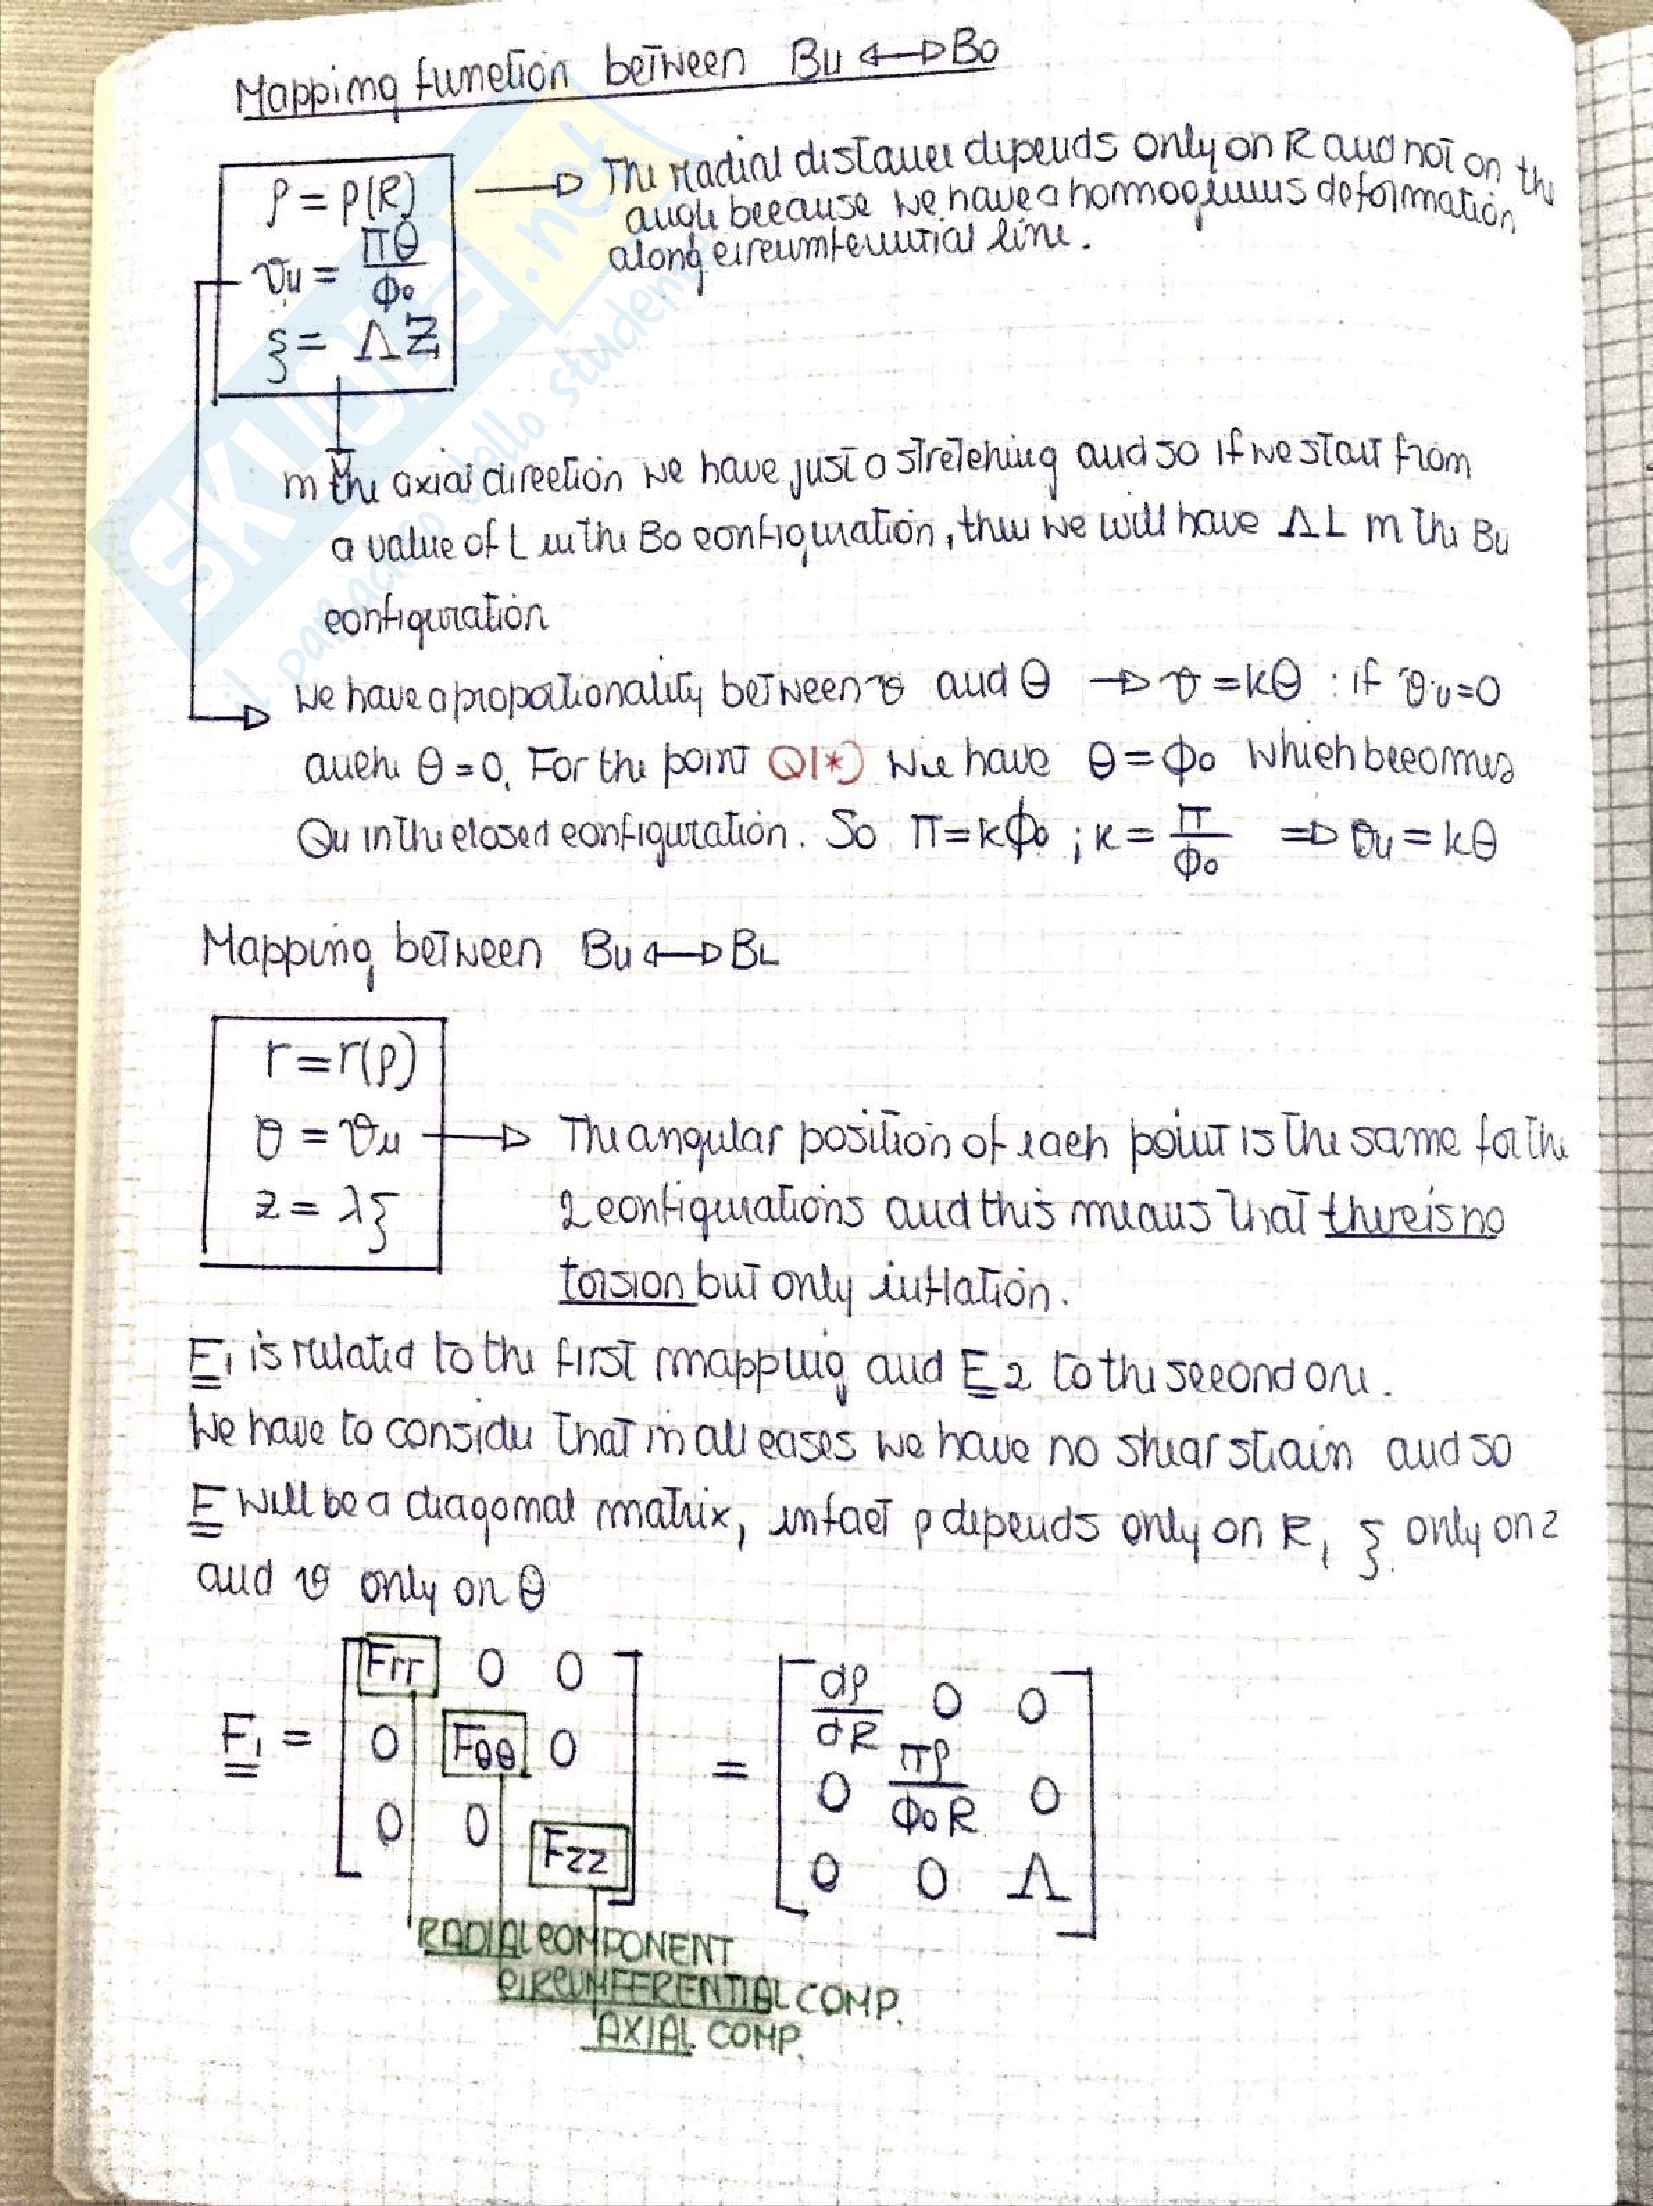 Mapping function between Bu ↔ Bo
ρ = ρ(R) → The radial distance depends only on R and not on the
angle because we have a homogeneus deformation
along circumferential line.
ϑu = Πθ/Φo
ξ = ΛZ
in the axial direction we have just a stretching and so if we start from
a value of L in the Bo configuration, then we will have ΛL in the Bu
configuration
We have a proportionality between ϑ and θ → ϑ = kθ : if ϑu = 0
anche θ = 0. For the point Q(*) we have θ = Φo which becomes
Qu in the closed configuration. So Π = kΦo ; k = Π/Φo ⇒ ϑu = kθ
Mapping between Bu ↔ BL
r = r(ρ)
θ = ϑu → The angular position of each point is the same for the
z = λξ 2 configurations and this means that there is no
torsion but only inflation.
F1 is related to the first mapping and F2 to the second one.
We have to consider that in all cases we have no shear strain and so
F will be a diagonal matrix, in fact ρ depends only on R, ξ only on z
and ϑ only on θ
F1 = [Frr 0 0 = [dρ/dR 0 0
0 Fθθ 0 0 Πρ/ΦoR 0
0 0 Fzz] 0 0 Λ]
RADIAL COMPONENT
CIRCUMFERENTIAL COMP.
AXIAL COMP.
SKUOLA.net